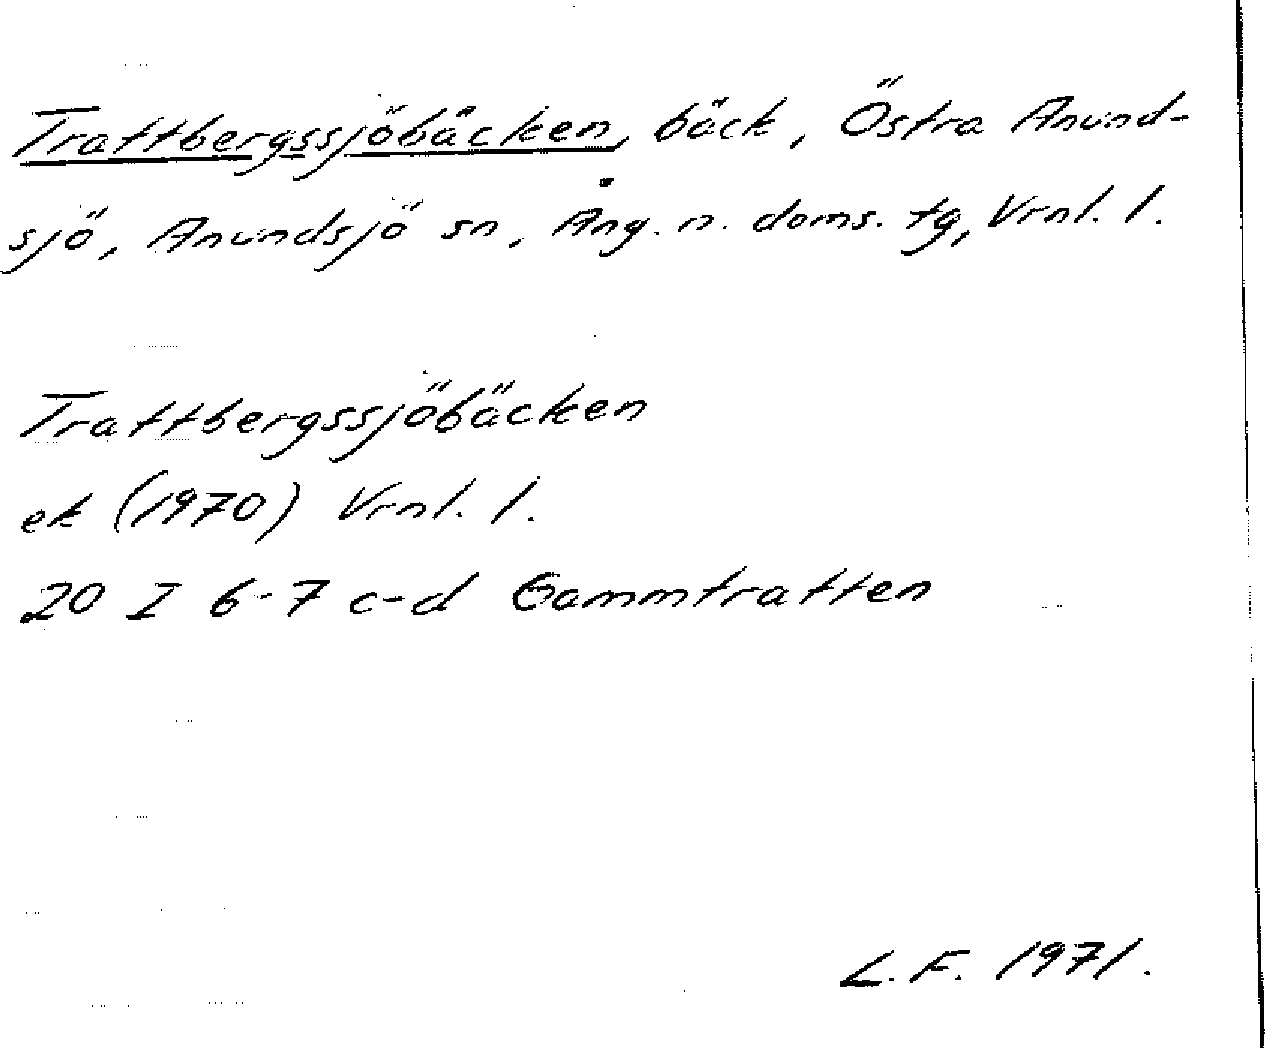 Trattbergssjöbäcken, bäck, Östra Anund-
sjö, Anundsjö sn, Ång. n. doms. tg, Vrnl. l.
Trattbergssjöbäcken
ek (1970) Vrnl. l.
20 I 6-7 c-d Gammtratten
L.F. 1971.